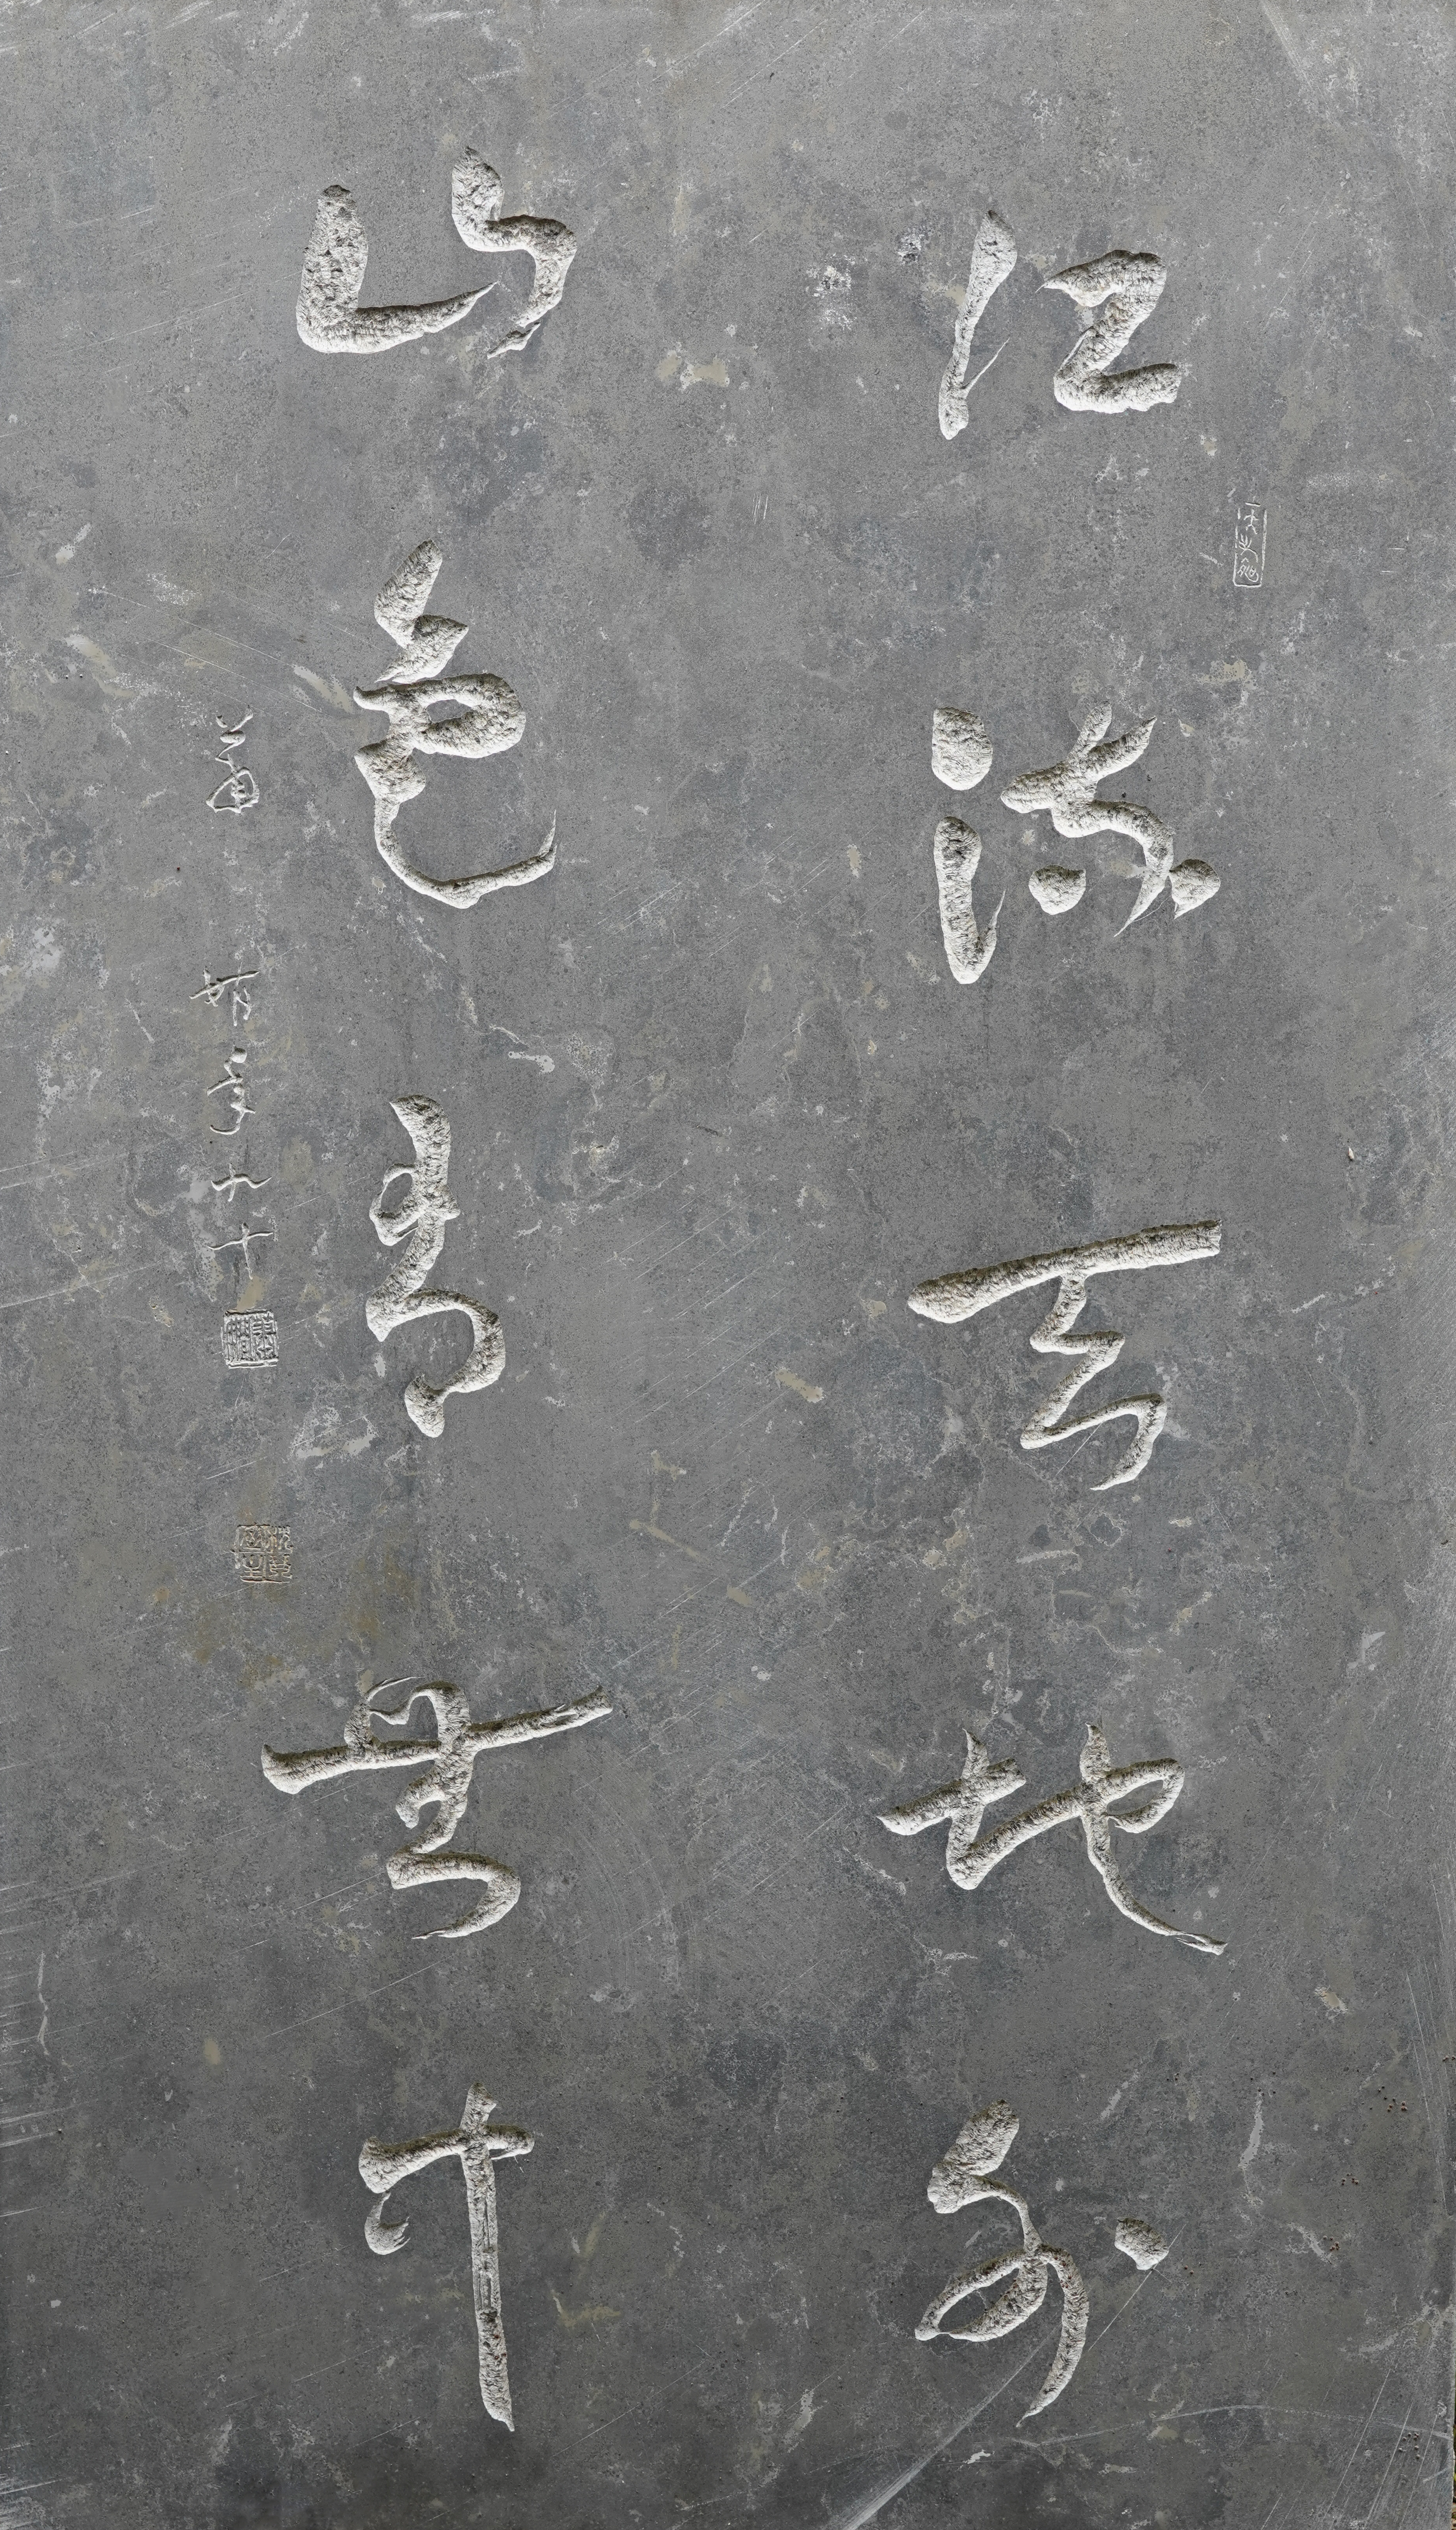 江流天地外
山色有無中
萧娴年九十